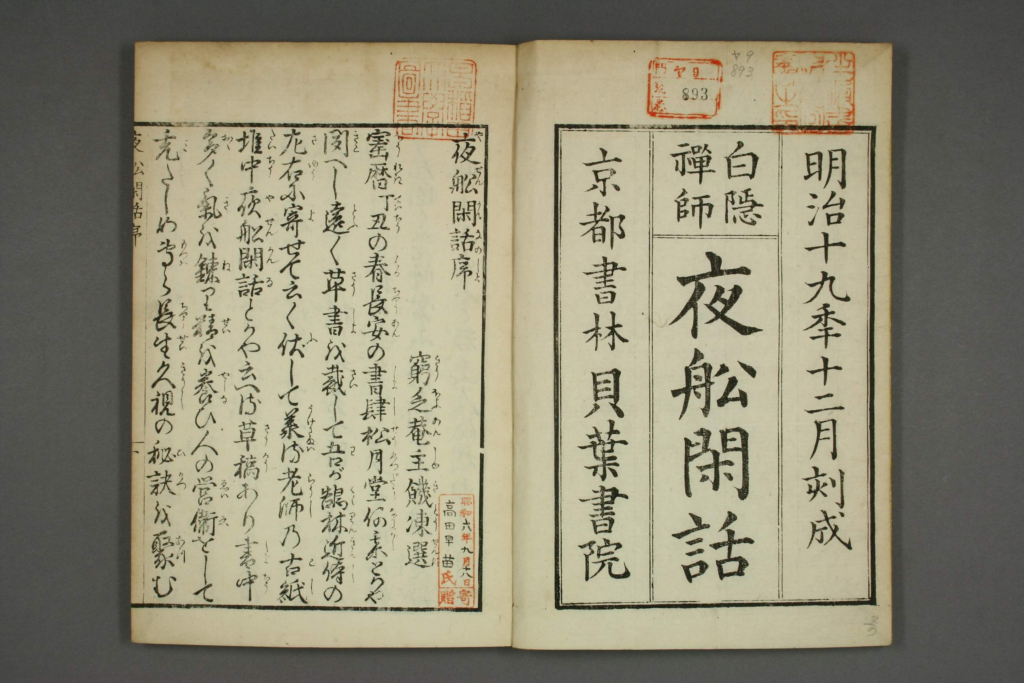 明治十九季十二月刻成
白隠
禪師
夜船閑話
京都書林 貝葉書院
893
ヤ9
893
夜船閑話序
窮乏菴主饑凍選
寳暦丁丑の春長安の書肆松月堂何某とかや
聞へし遠く草書を裁して吾が鵠林近侍の
左右に寄せて云く伏して承る老師乃古紙
堆中夜船閑話とかや云へる草稿あり書中
多く氣を錬り精を養ひ人の営衞をして
充たしめ専ら長生久視の秘訣を聚む
夜船閑話序
昭和六年九月十八日寄
高田早苗氏贈